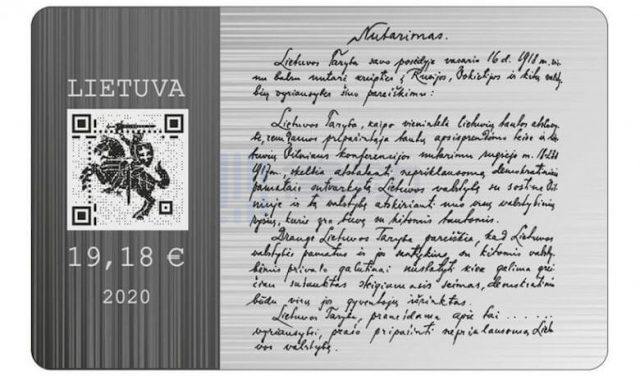 LIETUVA
19,18 €
2020
Nutarimas.
Lietuvos Taryba savo posėdyje vasario 16 d. 1918 m. vie-
nu balsu nutarė kreiptis į Rusijos, Vokietijos ir kitų valsty-
bių vyriausybes šiuo pareiškimu:
Lietuvos Taryba, kaipo vienintelė lietuvių tautos atstovy-
bė, remdamos pripažintąja tautų apsisprendimo teise ir lie-
tuvių Vilniaus konferencijos nutarimu rugsėjo m. 18-23 d.
1917 m., skelbia atstatanti nepriklausomą demokratiniais
pamatais sutvarkytą Lietuvos valstybę su sostine Vil-
niuje ir tą valstybę atskirianti nuo visų valstybinių
ryšių, kurie yra buvę su kitomis tautomis.
Drauge Lietuvos Taryba pareiškia, kad Lietuvos
valstybės pamatus ir jos santykius su kitomis valsty-
bėmis privalo galutinai nustatyti kiek galima grei-
čiau sušauktas steigiamasis seimas, demokratiniu
būdu visų jos gyventojų išrinktas.
Lietuvos Taryba, pranešdama apie tai ......
vyriausybei, prašo pripažinti nepriklausomą Lietu-
vos valstybę.